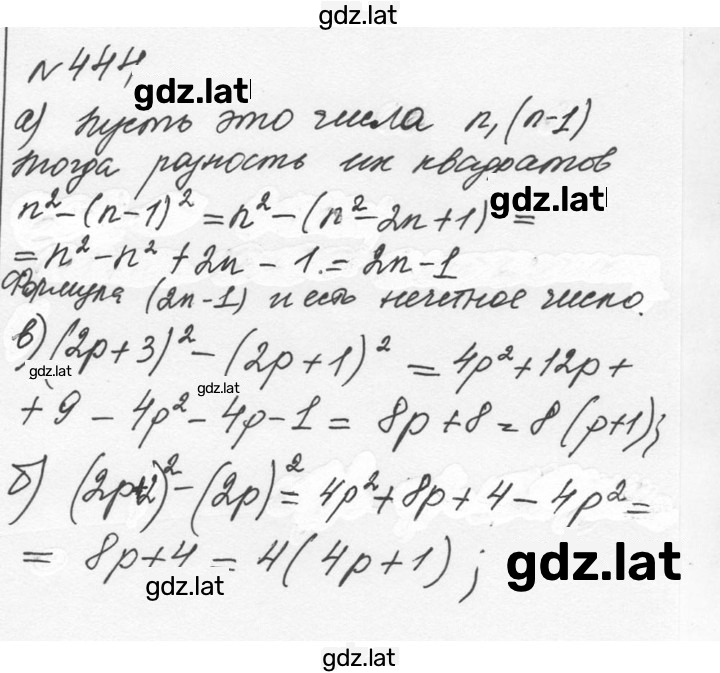 gdz.lat
№ 444
gdz.lat
а) Пусть это числа n, (n-1)
тогда разность их квадратов
n² - (n-1)² = n² - (n² - 2n + 1) =
gdz.lat
= n² - n² + 2n - 1. = 2n - 1
Формула (2n-1) и есть нечетное число.
в) (2p + 3)² - (2p + 1)² = 4p² + 12p +
gdz.lat
gdz.lat
+ 9 - 4p² - 4p - 1 = 8p + 8 = 8 (p+1);
б) (2p+2)² - (2p)² = 4p² + 8p + 4 - 4p² =
= 8p + 4 = 4 (4p + 1) ;
gdz.lat
gdz.lat
gdz.lat